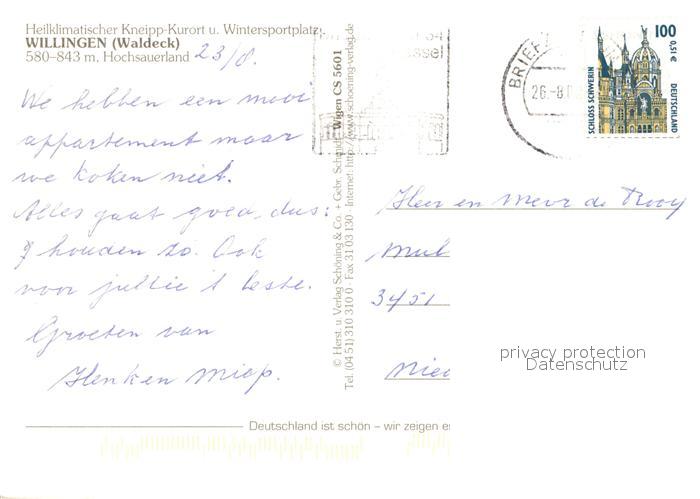 Heilklimatischer Kneipp-Kurort u. Wintersportplatz
WILLINGEN (Waldeck)
580–843 m, Hochsauerland 23/8.
We hebben een mooi
appartement maar
we koken niet.
Alles gaat goed, dus:
houden zo. Ook
voor jullie 't beste.
Groeten van
Henk en Miep.
© Herst. u. Verlag Schöning & Co. + Gebr. Schmidt
Wigen CS 5601
Tel. (04 51) 310 310 0 · Fax 31 03 130 · Internet: http://www.schoening-verlag.de
BRIEF
26.-8.
100
0,51 €
SCHLOSS SCHWERIN
DEUTSCHLAND
Heer en Mevr de Rooy
Mul
3451
privacy protection
Datenschutz
Deutschland ist schön – wir zeigen es